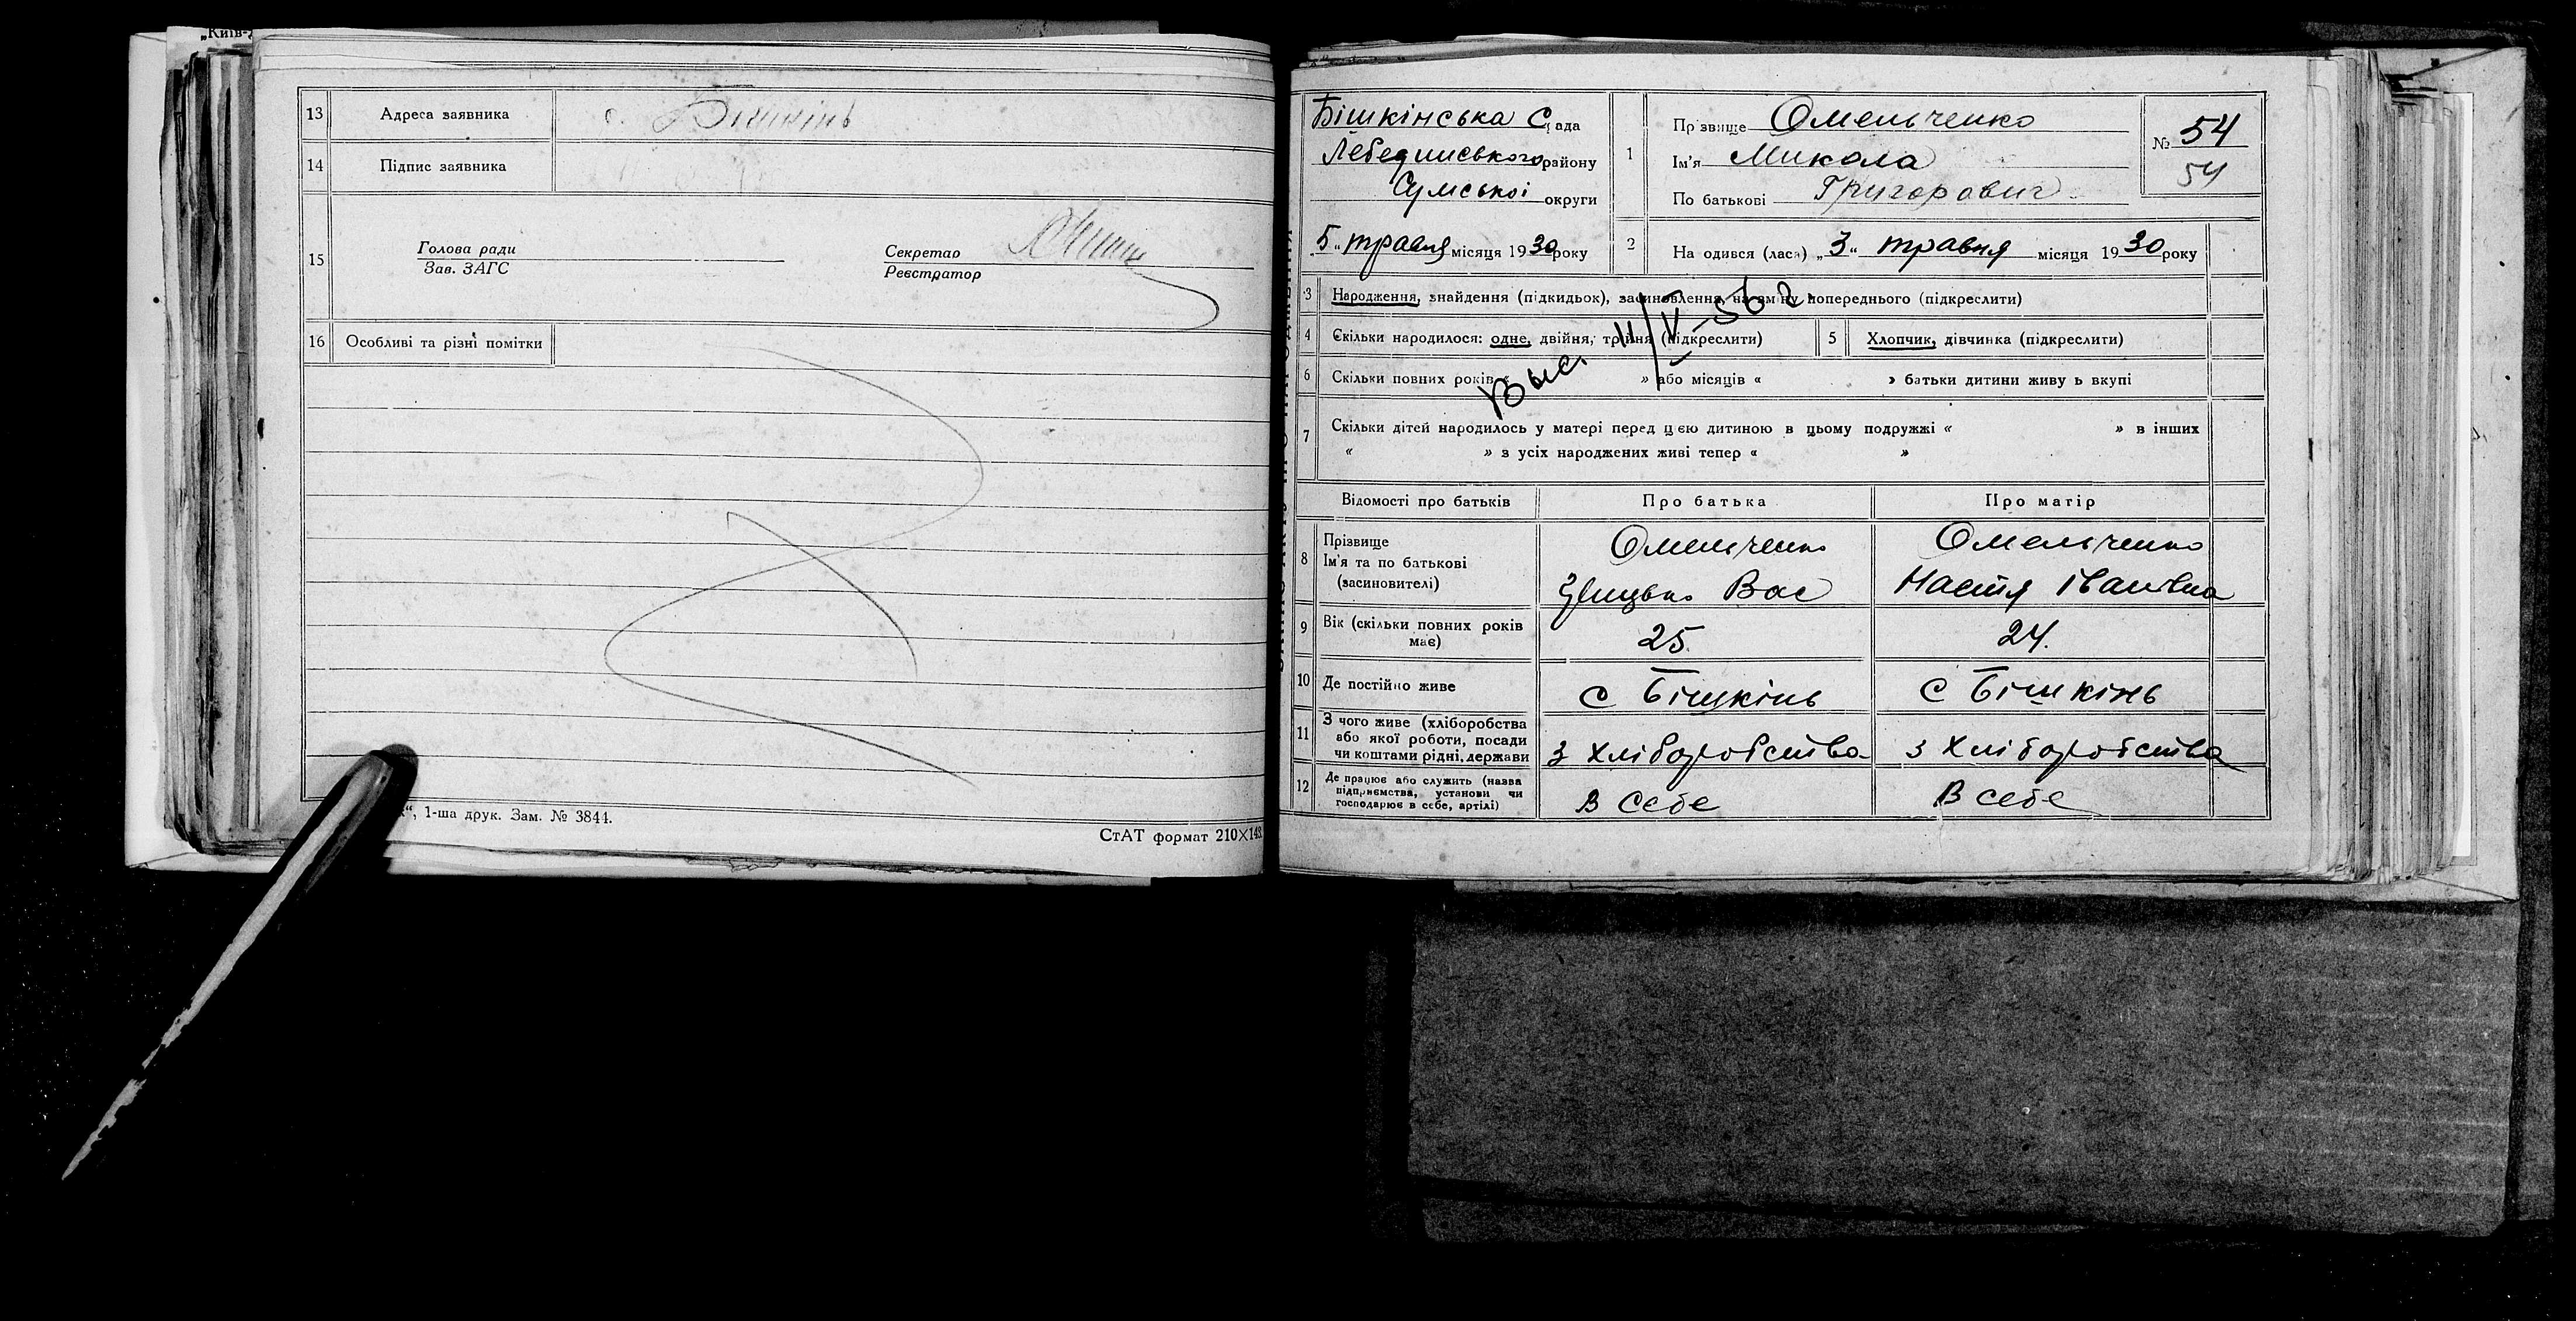 „Київ-
13 Адреса заявника с. Бішкінь
14 Підпис заявника
15 Голова ради
Зав. ЗАГС
Секретар
Реєстратор
16 Особливі та різні помітки
", 1-ша друк. Зам. № 3844.
СтАТ формат 210×148
Бішкінська С рада
Лебединського району
Сумської округи
5 „ травня місяця 1930 року
1 Прізвище Омельченко
Ім'я Микола
По батькові Григорович
№ 54
54
2 Народився (лася) „3" травня місяця 1930 року
3 Народження, знайдення (підкидьок), засиновлення, на зміну попереднього (підкреслити)
4 Скільки народилося: одне, двійня, трійня (підкреслити)
5 Хлопчик, дівчинка (підкреслити)
6 Скільки повних років « » або місяців « » батьки дитини живуть вкупі
7 Скільки дітей народилось у матері перед цією дитиною в цьому подружжі « » в інших
« » з усіх народжених живі тепер « »
Відомості про батьків Про батька Про матір
8 Прізвище
Ім'я та по батькові
(засиновителі)
Омельченко
Грицько Вас
Омельченко
Настя Іванівна
9 Вік (скільки повних років
має)
25.
24.
10 Де постійно живе с Бішкінь с Бішкінь
11 З чого живе (хліборобства
або якої роботи, посади
чи коштами рідні, держави
з хліборобства з хліборобства
12 Де працює або служить (назва
підприємства, установи чи
господарює в себе, артілі)
в себе в себе